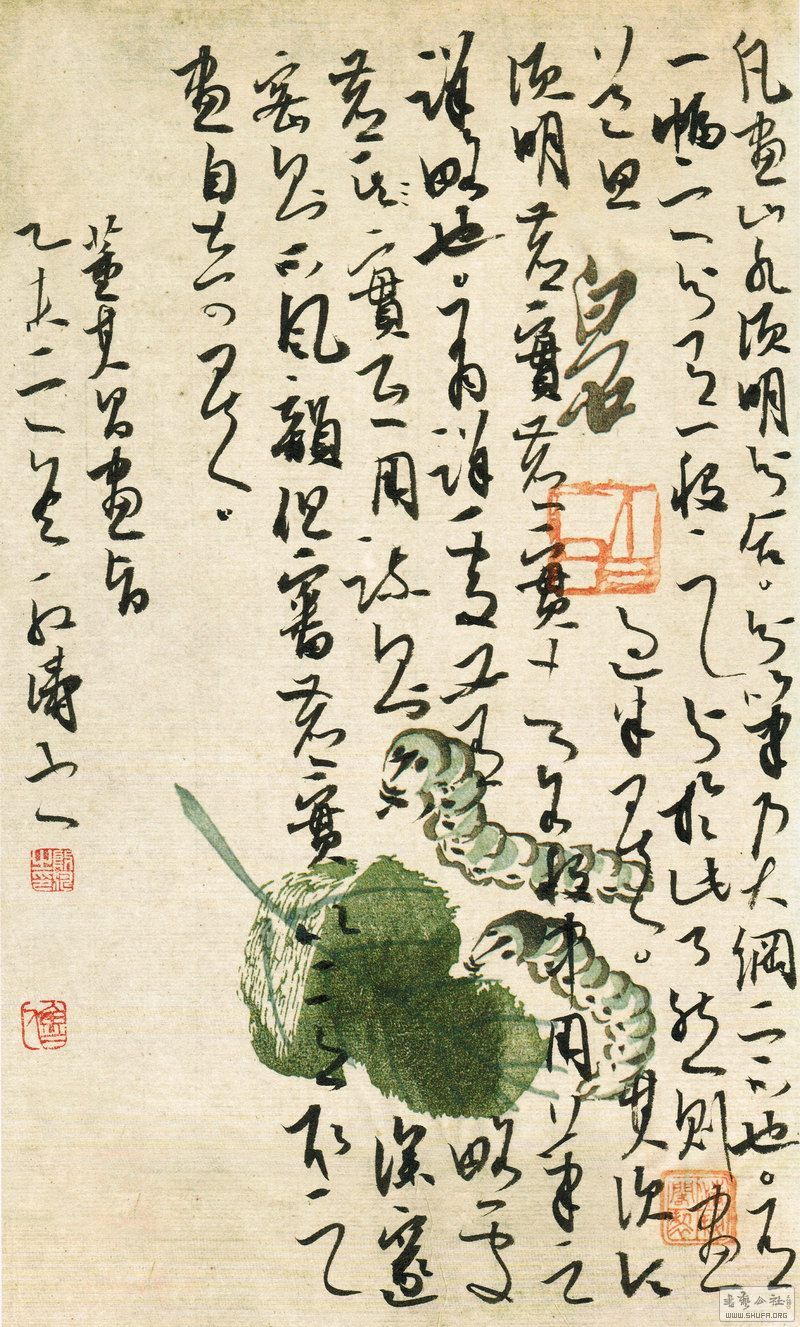 凡畫山水須明分合。分筆乃大綱宗也。有
一幅之分有一段之分於此了然則畫
道
過半矣。其次
須明虛實虛實者各段中用筆之
詳略也。有詳處必要有略處
虛實互用疏則不深邃
密則不風韻但審虛實以意取之
畫自奇矣。
董其昌畫旨
乙未
白石
WWW.SHUFA.ORG